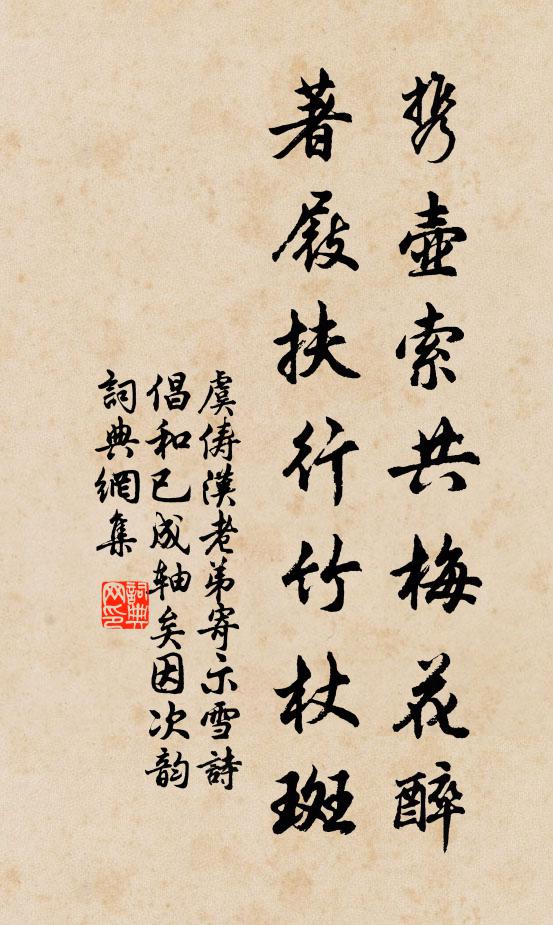 携壺索共梅花醉
著屐扶行竹杖斑
虞儔漢老弟寄示雪詩
倡和已成軸矣因次韵
詞典網集
詞典網印